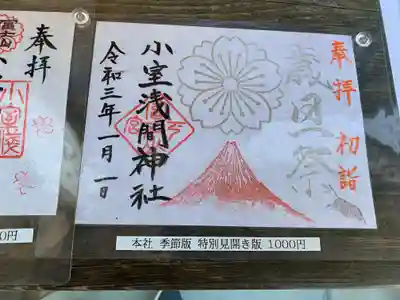 奉拝 初詣
歳旦祭
小室浅間神社
令和三年一月一日
本社 季節版 特別見開き版 1000円
奉拝
0円